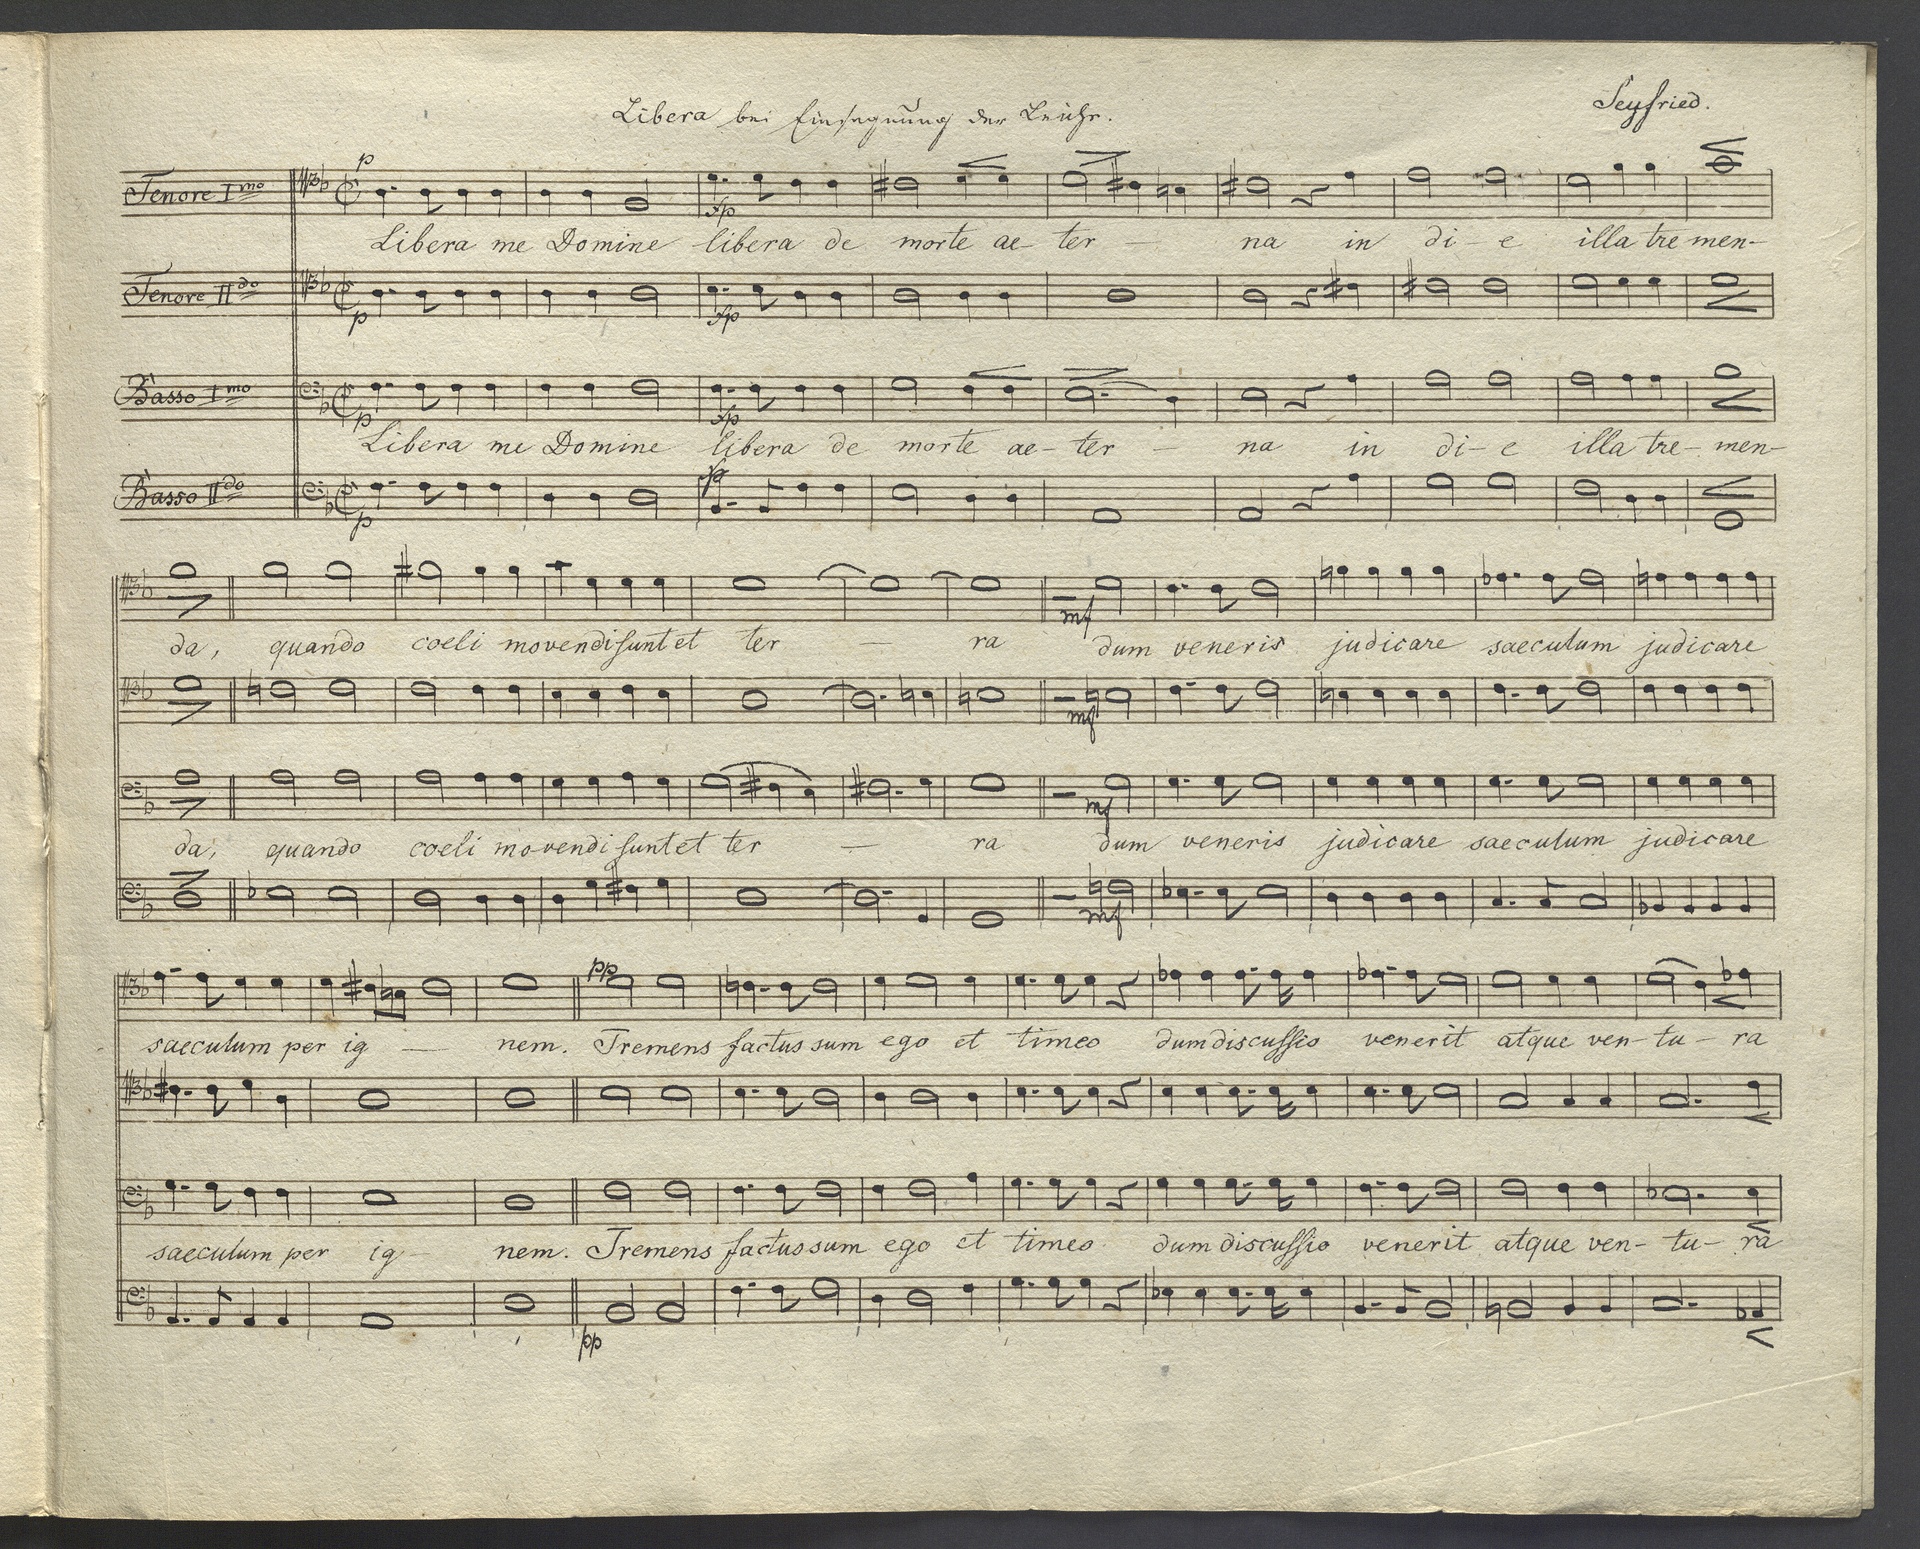 Seyfried.
Libera bei Einsegnung der Leiche.
p
Tenore Imo
fp
Libera me Domine libera de morte ae- ter — na in di- e illa tremen-
Tenore IIdo
p fp
Basso Imo
p fp
Libera me Domine libera de morte ae- ter — na in di- e illa tre- men-
Basso IIdo
p fp
mf
da, quando coeli movendi sunt et ter — ra dum veneris judicare saeculum judicare
mf
mf
da, quando coeli movendi sunt et ter — ra dum veneris judicare saeculum judicare
mf
pp
saeculum per ig — nem. Tremens factus sum ego et timeo dum discussio venerit atque ven- tu- ra
saeculum per ig- nem. Tremens factus sum ego et timeo dum discussio venerit atque ven- tu- ra
pp